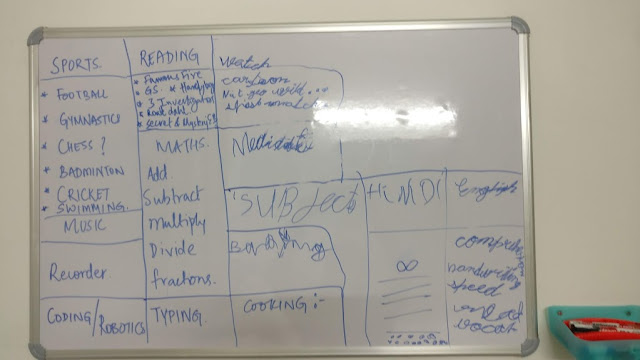 SPORTS
* FOOTBALL
* GYMNASTICS
* CHESS ?
* BADMINTON
* CRICKET
* SWIMMING.
MUSIC
Recorder
CODING/ROBOTICS
READING
* Famous Five
* GS.
* 3 Investigators
* Roald dahl
* Secret & Mystery
MATHS.
Add.
Subtract
Multiply
Divide
fractions.
TYPING.
Watch
cartoon
Nat geo
SUBJect
COOKING :-
HiNDi
English
∞
handwriting
speed
vocab